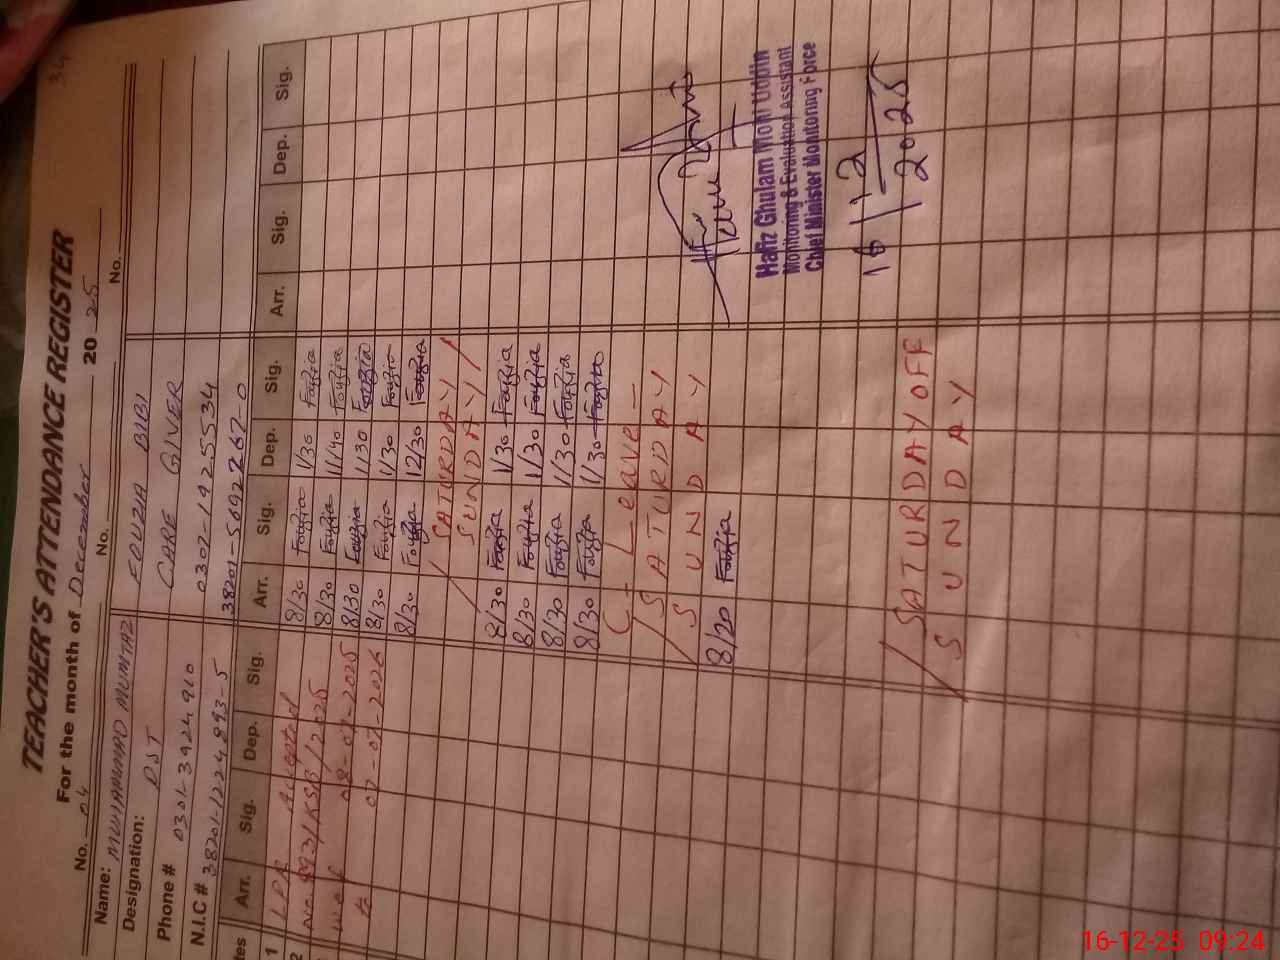 34
TEACHER'S ATTENDANCE REGISTER
For the month of December 2025
No. 04 No. No.
Name: MUHAMMAD MUMTAZ FOUZIA BIBI
Designation: DST CARE GIVER
Phone # 0301-3924910 0302-1925534
N.I.C # 38201-1224893-5 38201-5692262-0
Arr. Sig. Dep. Sig. Arr. Sig. Dep. Sig. Arr. Sig. Dep. Sig.
1 LPR Accepted 8/30 Fouzia 1/30 Fouzia
2 8/30 Fouzia 11/40 Fouzia
08-07-2025 8/30 Fouzia 1/30 Fouzia
07-07-2026 8/30 Fouzia 1/30 Fouzia
8/30 Fouzia 12/30 Fouzia
SATURDAY
SUNDAY
8/30 Fouzia 1/30 Fouzia
8/30 Fouzia 1/30 Fouzia
8/30 Fouzia 1/30 Fouzia
8/30 Fouzia 1/30 Fouzia
C- Leave -
SATURDAY
SUNDAY
8/30 Fouzia
Hafiz Ghulam Mohi Uddin
Monitoring & Evaluation Assistant
Chief Minister Monitoring Force
16/12
2025
SATURDAY OFF
SUNDAY
16-12-25 09:24